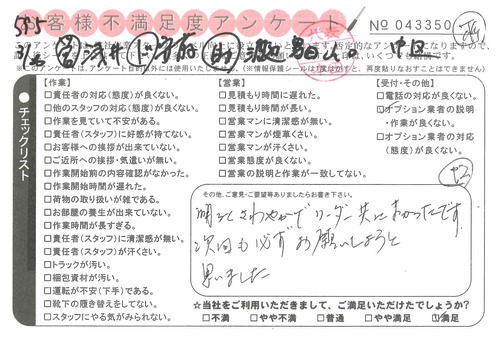 お客様不満足度アンケート
No 043350
チェックリスト
【作業】
□責任者の対応(態度)が良くない。
□他のスタッフの対応(態度)が良くない。
□作業を見ていて不安がある。
□責任者(スタッフ)に好感が持てない。
□お客様への挨拶が出来ていない。
□ご近所への挨拶・気遣いが無い。
□作業開始前の内容確認がなかった。
□作業開始時間が遅れた。
□荷物の取り扱いが雑である。
□お部屋の養生が出来ていない。
□作業時間が長すぎる。
□責任者(スタッフ)に清潔感が無い。
□責任者(スタッフ)が汗くさい。
□トラックが汚い。
□梱包資材が汚い。
□運転が不安(下手)である。
□靴下の履き替えをしてない。
□スタッフにやる気がみられない。
【営業】
□見積もり時間に遅れた。
□見積もり時間が長い。
□営業マンに清潔感が無い。
□営業マンが煙草くさい。
□営業マンが汗くさい。
□営業態度が良くない。
□営業の説明と作業が一致してない。
【受付・その他】
□電話の対応が良くない。
□オプション業者の説明
・作業が良くない。
□オプション業者の対応
(態度)が良くない。
その他、ご意見・ご要望等ありましたらお書き下さい。
明るくさわやかで リーダー共によかったです
次回も必ずお願いしようと
思いました
☆当社をご利用いただきまして、ご満足いただけたでしょうか?
□不満 □やや不満 □普通 □やや満足 □満足